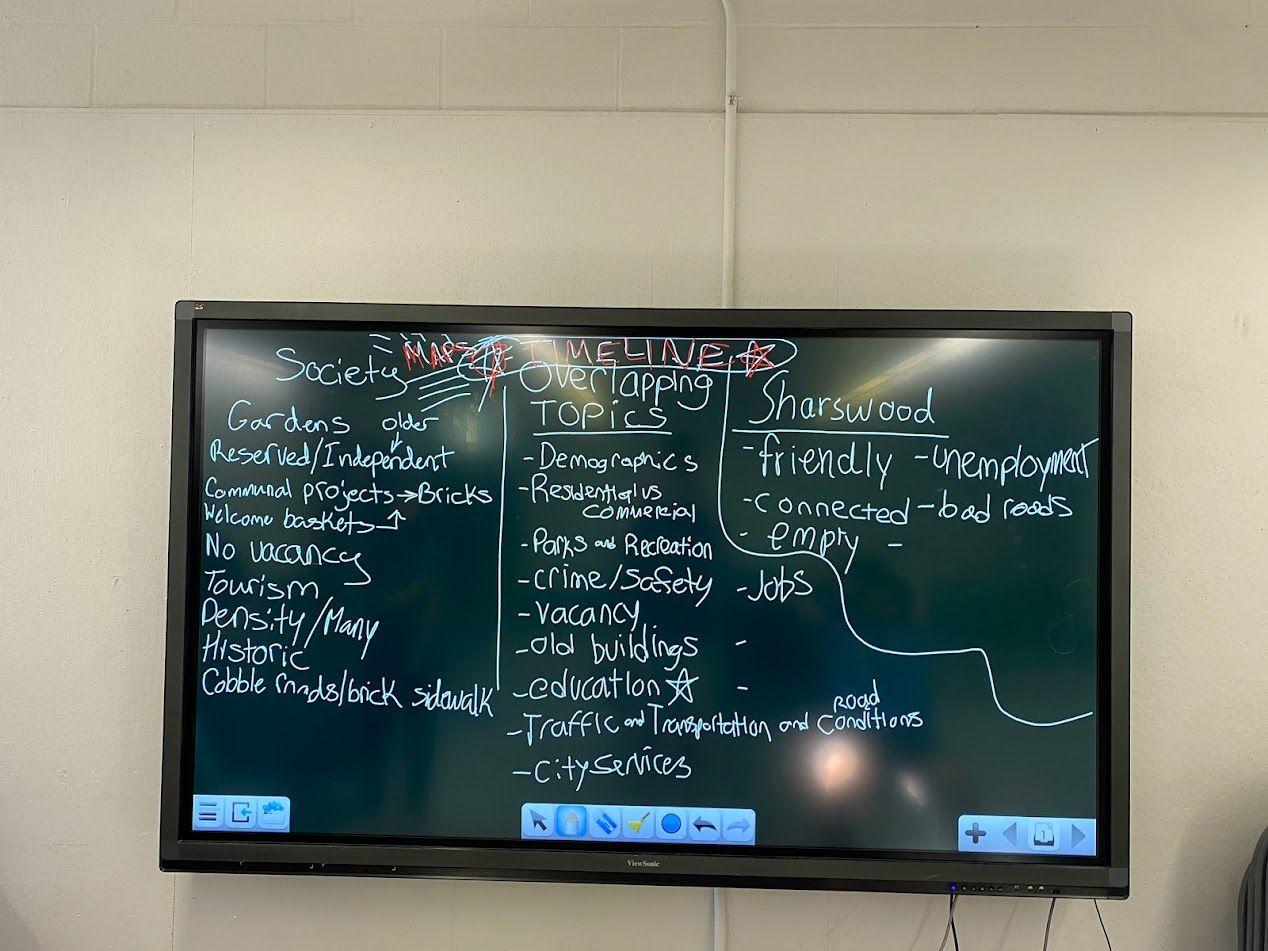 MAPS TIMELINE
Society
Gardens older
Reserved/Independent
Communal projects→Bricks
Welcome baskets
No vacancy
Tourism
Density/Many
Historic
Cobble roads/brick sidewalk
Overlapping
TOPICS
- Demographics
- Residential vs
commercial
- Parks and Recreation
- crime/safety
- vacancy
- old buildings
- education
- Traffic and Transportation and road conditions
- city services
- Jobs
-
-
Sharswood
- friendly - unemployment
- connected - bad roads
- empty -
1
ViewSonic